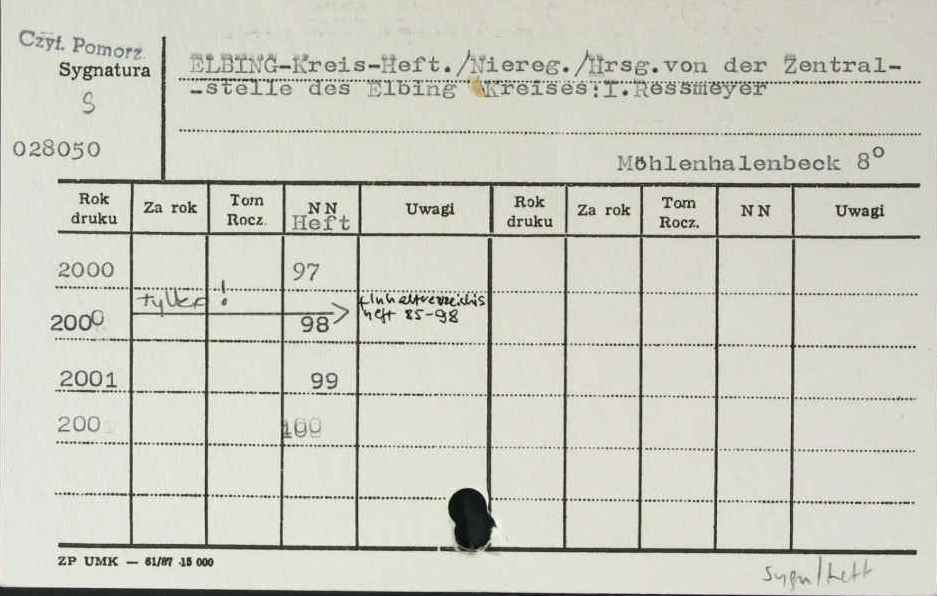 Czyt. Pomorz.
Sygnatura
S
028050
ELBING-Kreis-Heft./Niereg./Hrsg.von der Zentral-
-stelle des Elbing Kreises:I.Ressmeyer
Möhlenhalenbeck 8°
Rok druku Za rok Tom Rocz. NN Heft Uwagi Rok druku Za rok Tom Rocz. NN Uwagi
2000 97
tylko ! + Inhaltverzeichis
2000 98 heft 85-98
2001 99
200 100
ZP UMK — 61/87 -15 000
Sygn/heft